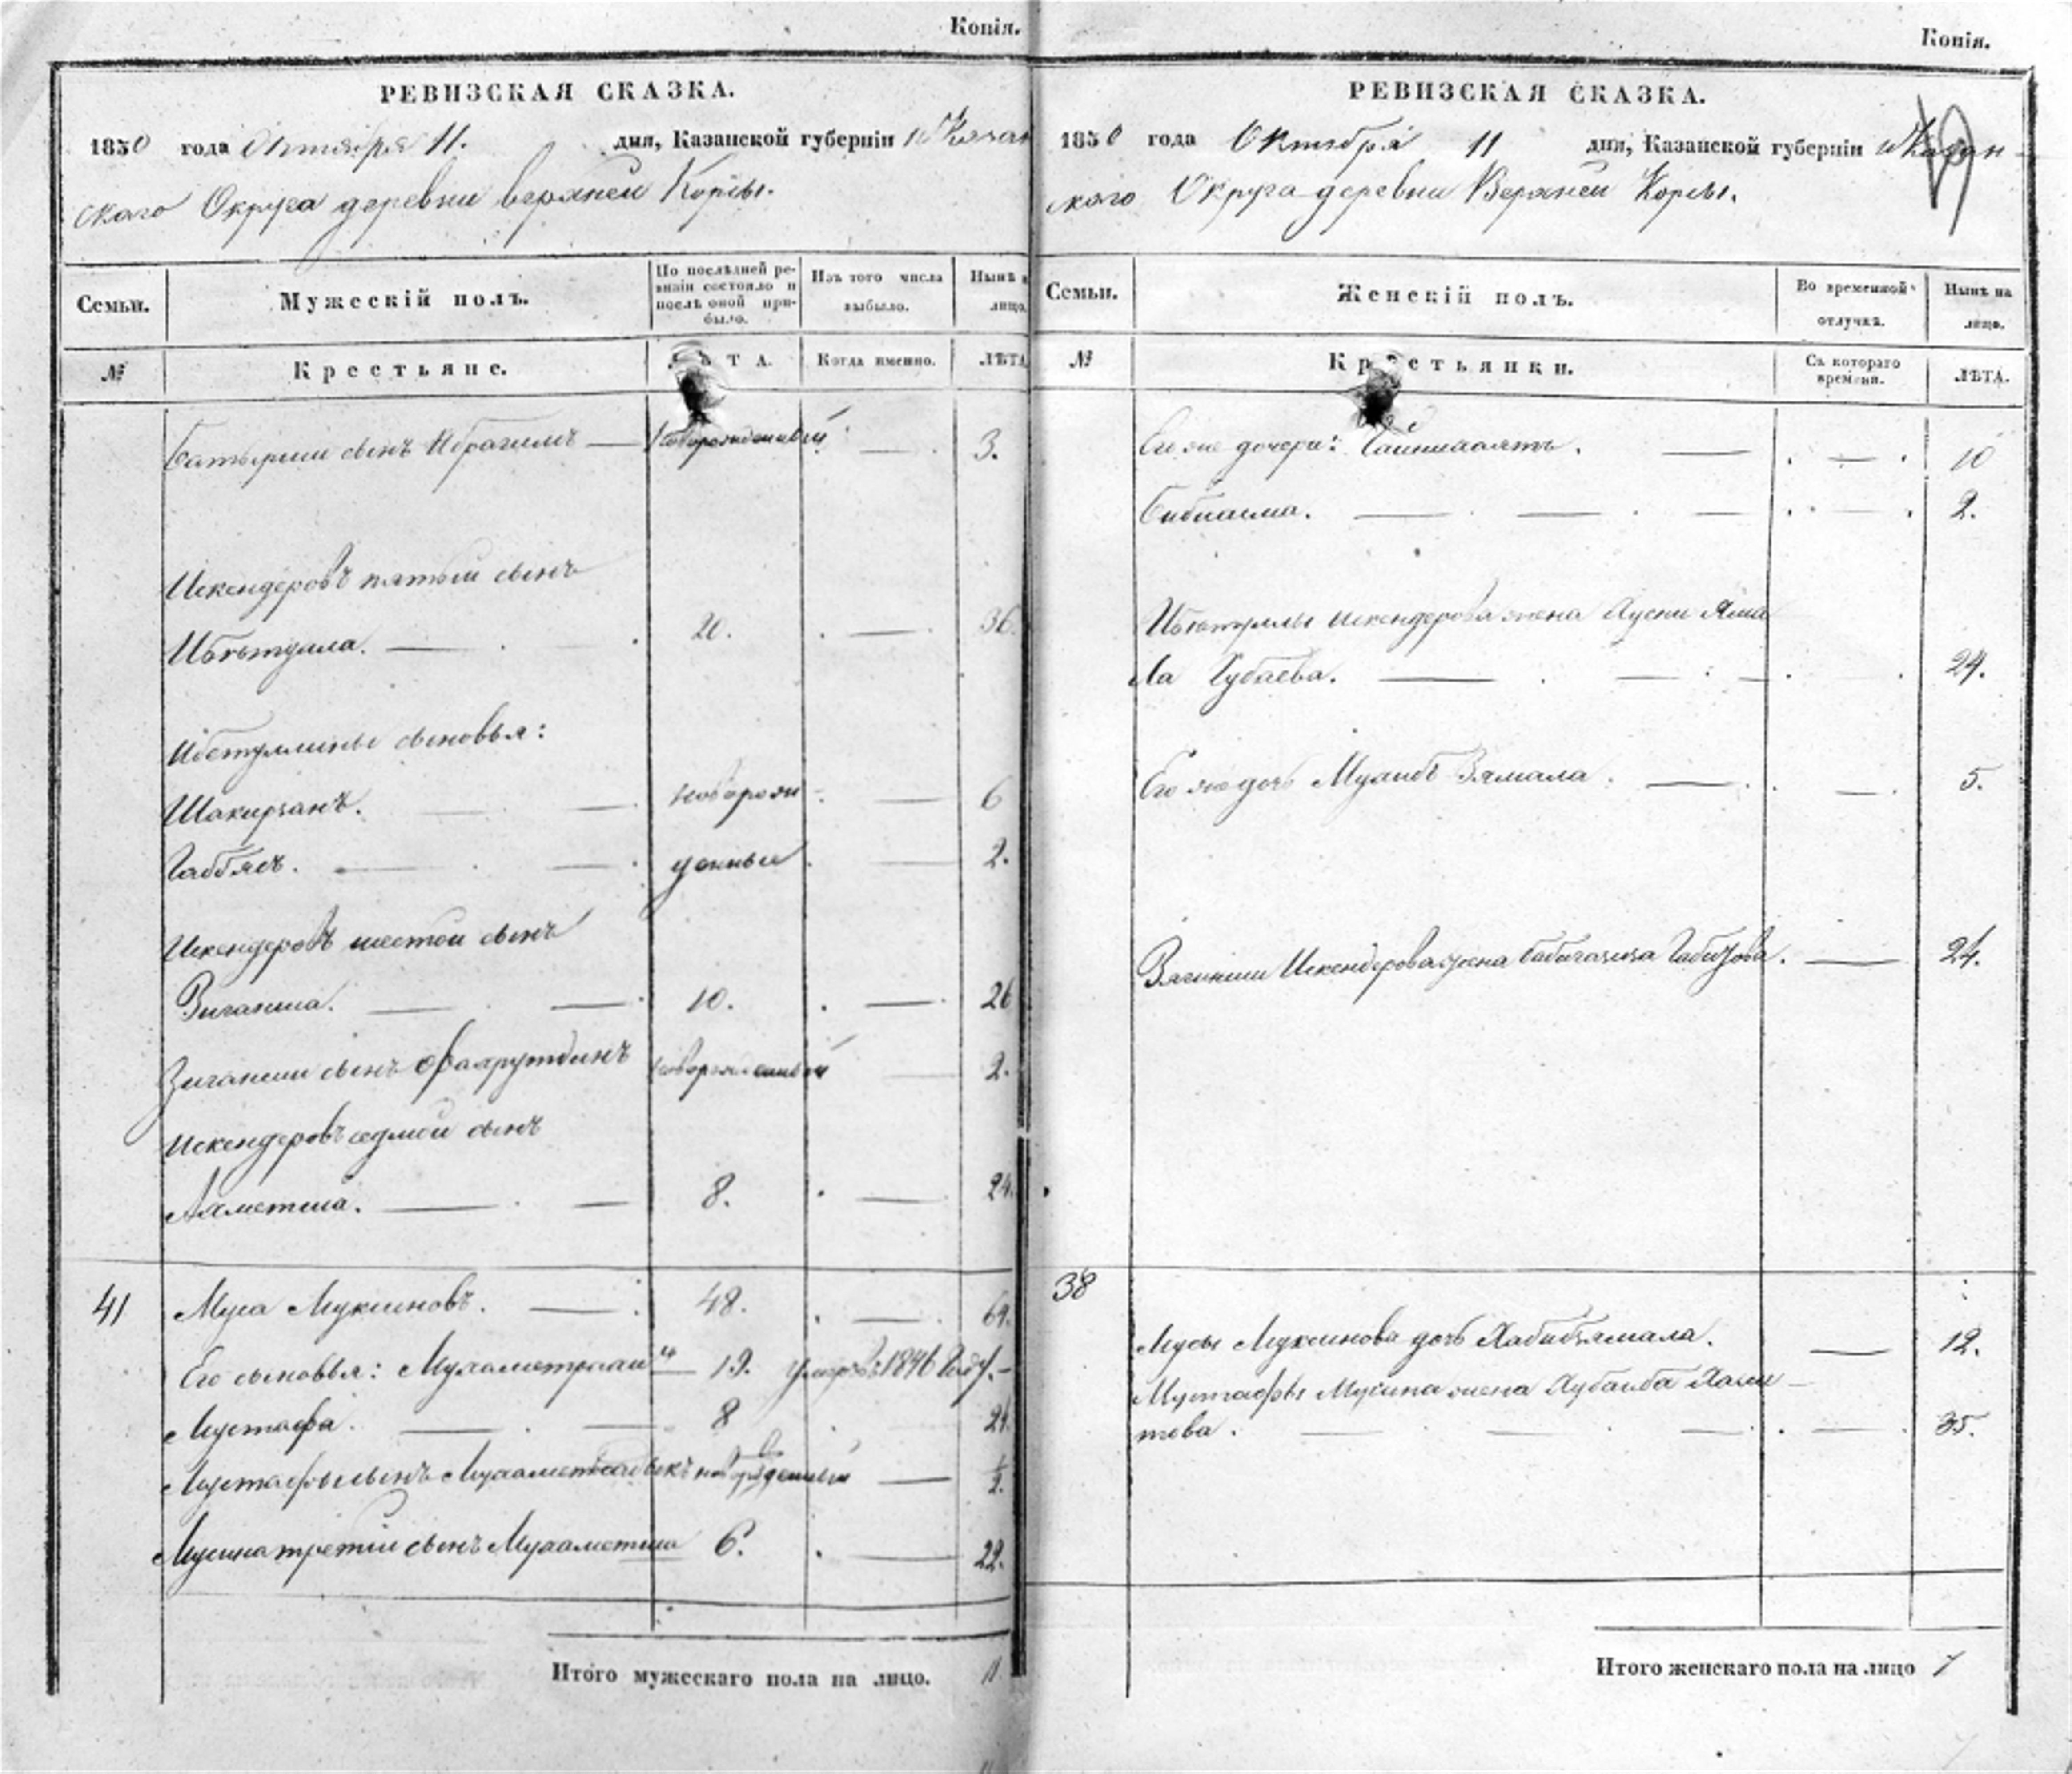 Копія.
РЕВИЗСКАЯ СКАЗКА.
1850 года Октября 11. дня, Казанской губерніи Казан
скаго Округа деревни верхней Корсы.
Семьи.
Мужескій полъ.
По послѣдней ре-
визіи состояло и
послѣ оной при-
было.
Изъ того числа
выбыло.
Нынѣ
лицо.
№
Крестьяне.
ТА.
Когда именно.
ЛѢТА
Батырши сынъ Ибрагимъ — новорожденный — 3.
Искендеровъ пятый сынъ
20. — 36.
сыновья:
Шакирзанъ. — новорож — 6
Габбясъ. — денные — 2.
Искендеровъ шестой сынъ
Зиганша. — 10. — 26
Зиганши сынъ Фахрутдинъ новорожденный — 2.
Искендеровъ седмой сынъ
Ахметша. — 8. — 24.
41 Муса Муксиновъ. — 48. — 64.
Его сыновья: — 19. 1846 году. —
Мустафа. — 8 24.
Мустафы сынъ новорожденный — 1/2.
Мусина третій сынъ Мухаметша 6. — 22.
Итого мужескаго пола на лицо. 11.
Копія.
РЕВИЗСКАЯ СКАЗКА.
1850 года Октября 11 дня, Казанской губерніи Казан-
скаго Округа деревни Верхней Корсы.
Семьи.
Женскій полъ.
Во временной
отлучкѣ.
Нынѣ на
лицо.
№
Крестьянки.
Съ котораго
времени.
ЛѢТА.
Его же дочери: — 10
Бибиасма. — 2.
Искендерова жена Хусни Яма
ла Губаева. — 24.
Его же дочь Зямала. — 5.
Искендерова жена — 24.
38
Мусы Муксинова дочь Хабибзямала. — 12.
Мустафы Мусина жена Хами-
това. — 35.
Итого женскаго пола на лицо 7